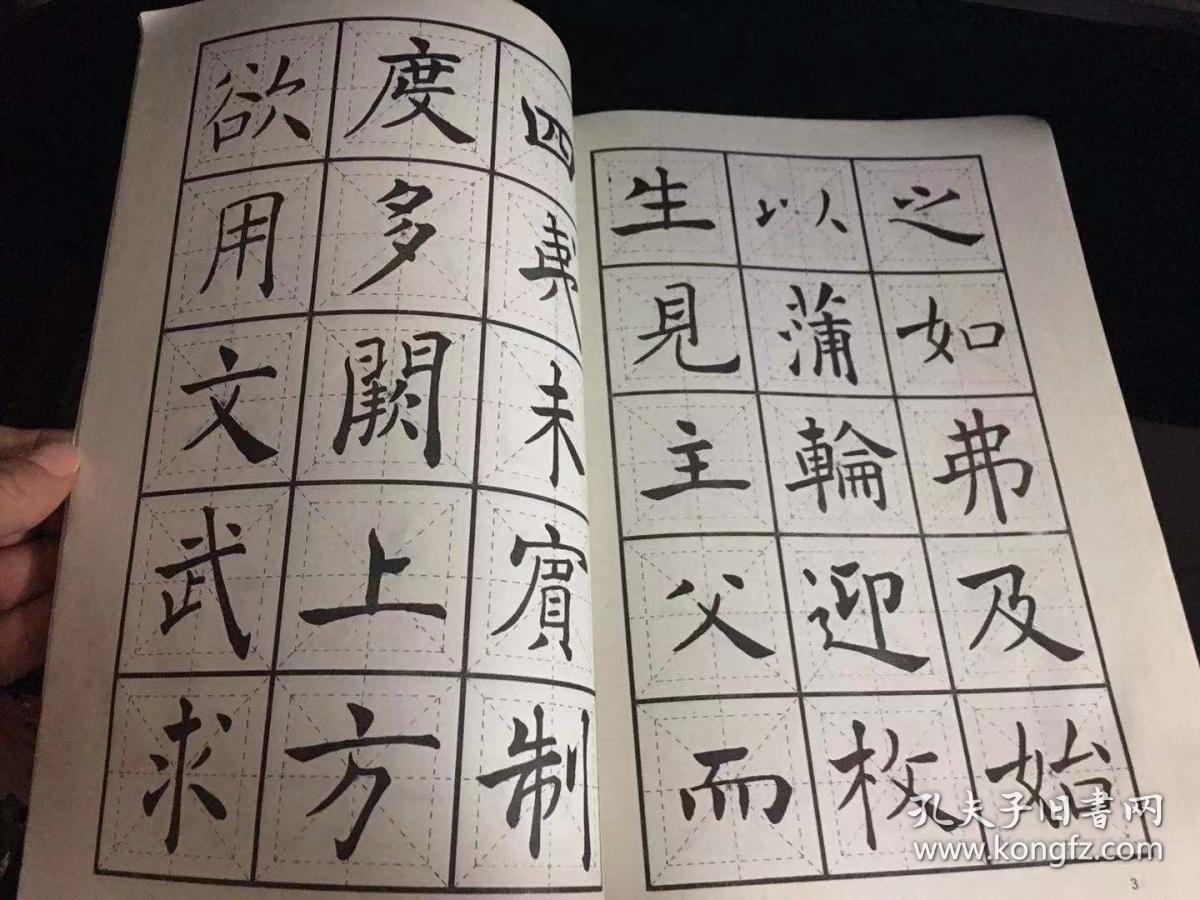 四夷未賓制
度多闕上方
欲用文武求
之如弗及始
以蒲輪迎枚
生見主父而
3
孔夫子旧書网
www.kongfz.com